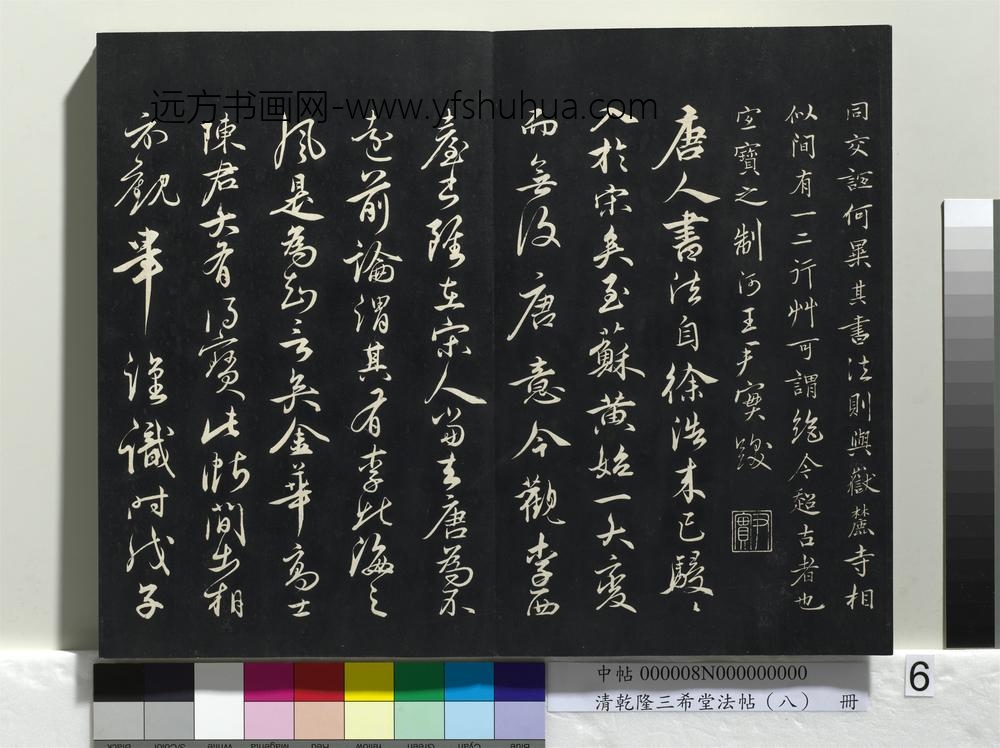 同交誣何異其書法則與嶽麓寺相
似間有一二行艸可謂絶今超古者也
宜寶之制河王尹實跋
尹實
唐人書法自徐浩末已駸〻
入於宋矣至蘇黃始一大變
而無復唐意今觀李西
臺書雖在宋人當去唐為不
遠前論謂其有李北海之
風是為知言矣金華高士
陳君大有得寶此斷簡出相
示觀畢謹識時戊子
远方书画网-www.yfshuhua.com
中帖 000008N000000000
清乾隆三希堂法帖（八） 冊
6
Black
3/Color
White
Magenta
Red
Yellow
Green
Cyan
Blue